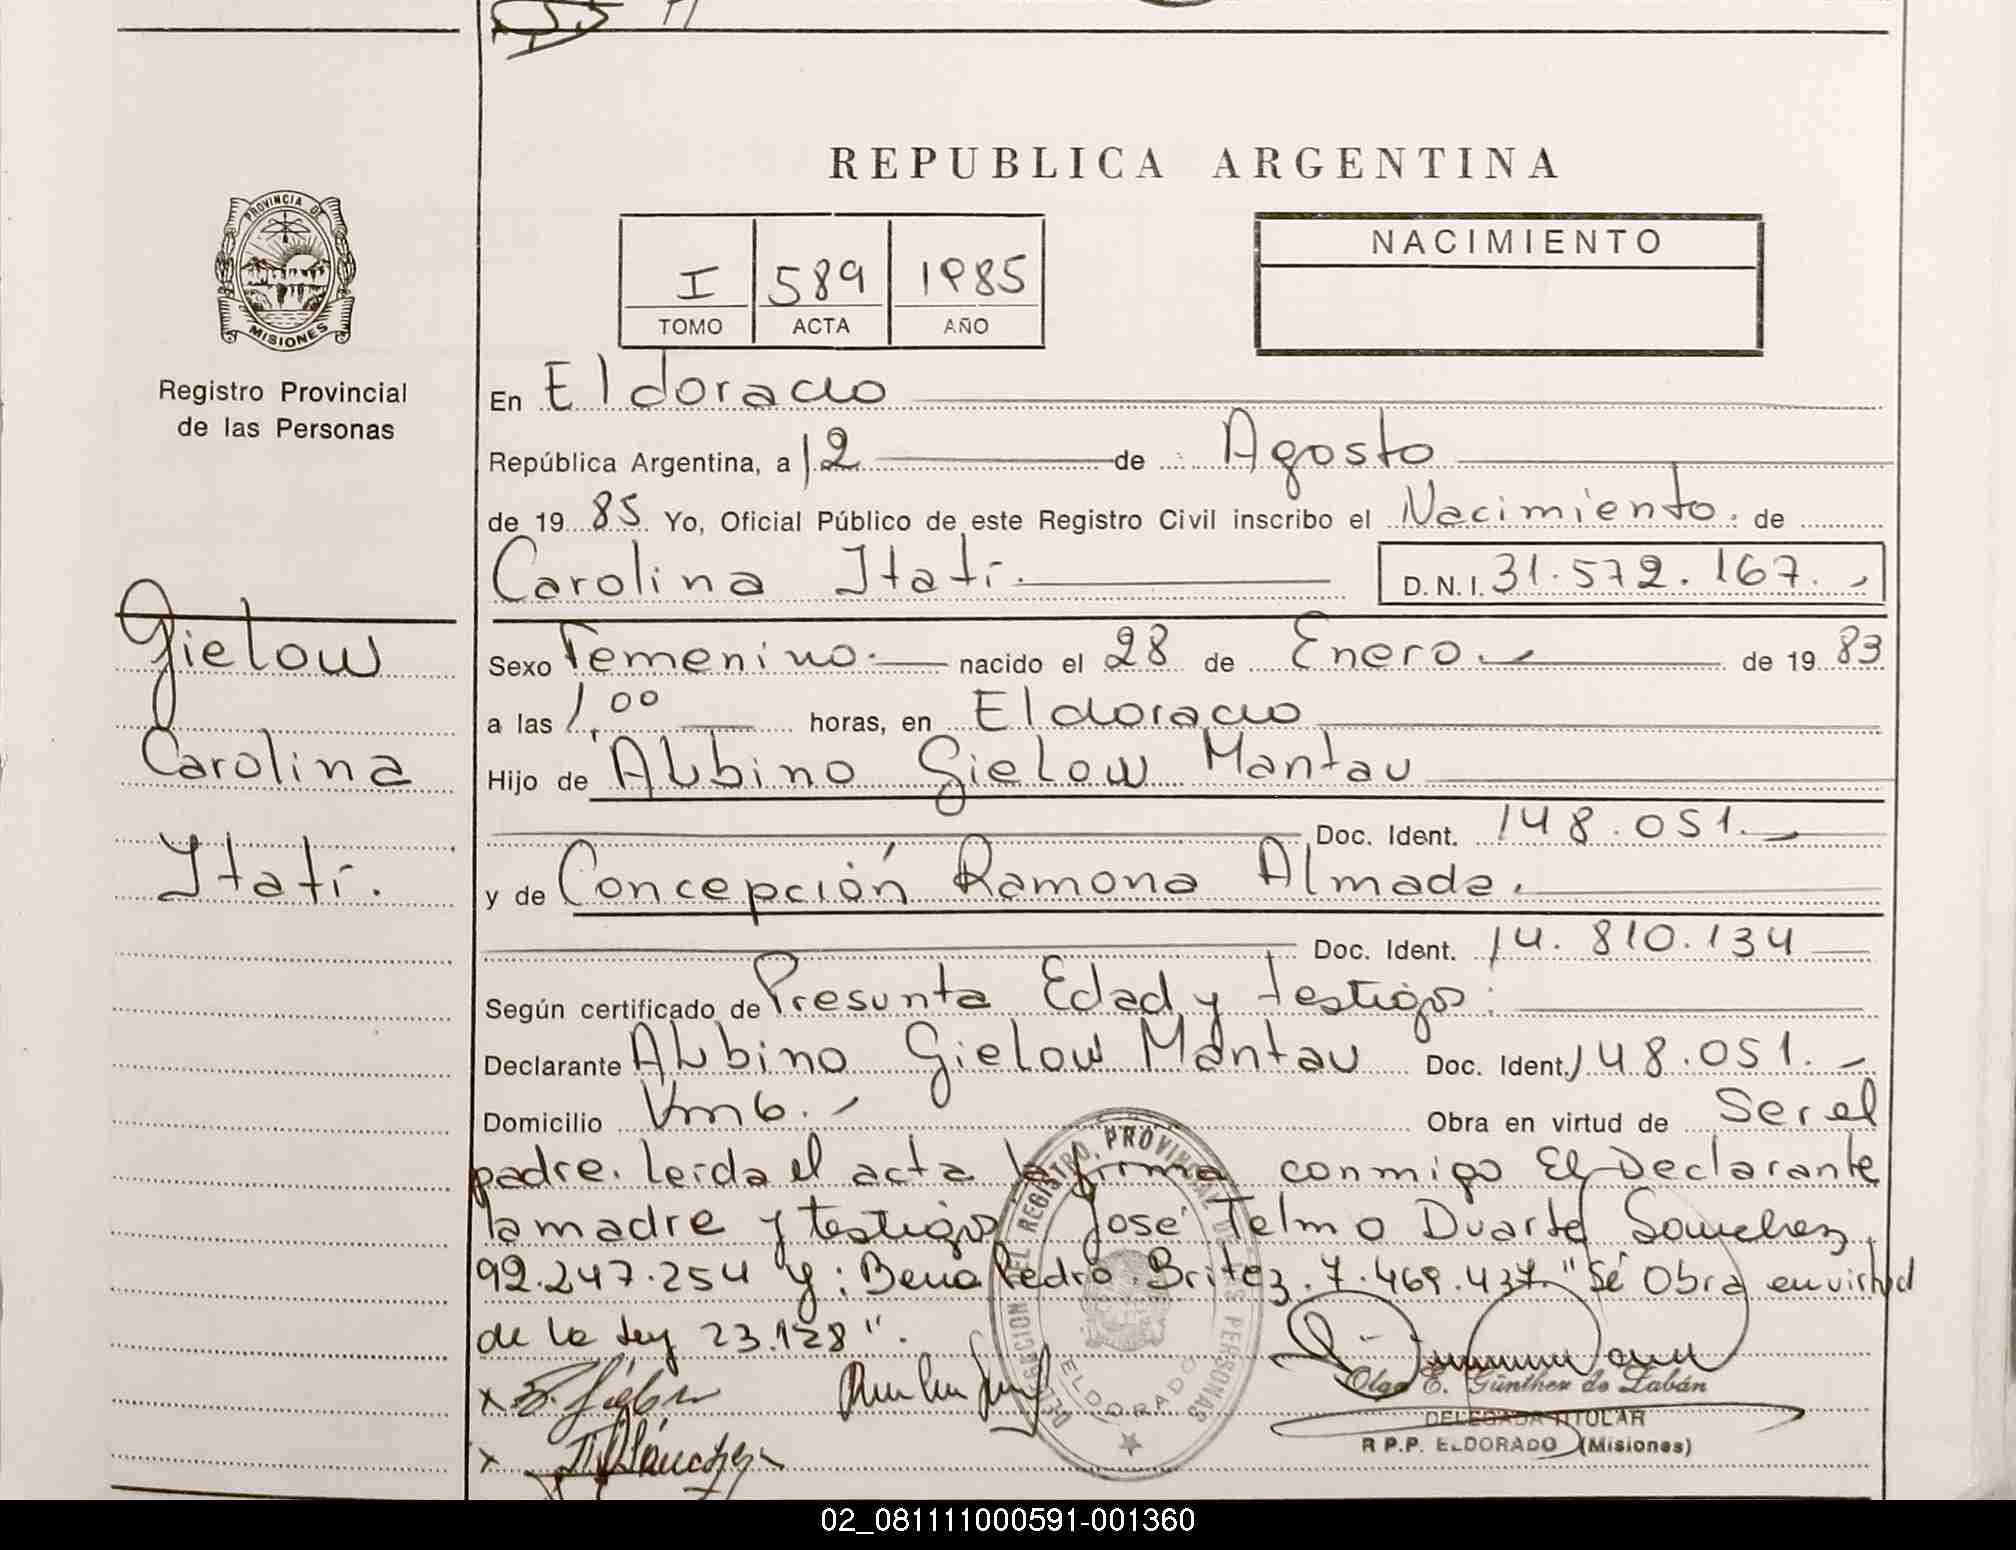 REPUBLICA ARGENTINA
PROVINCIA DE
MISIONES
Registro Provincial
de las Personas
I 589 1985
TOMO ACTA AÑO
NACIMIENTO
En Eldorado
República Argentina, a 12 de Agosto
de 19 85 Yo, Oficial Público de este Registro Civil inscribo el Nacimiento. de
Carolina Itatí. D.N.I. 31.572.167.
Gielow
Carolina
Itatí.
Sexo Femenino. nacido el 28 de Enero de 19 83
a las 1,00 horas, en Eldorado
Hijo de Albino Gielow Mantau
Doc. Ident. 148.051.
y de Concepción Ramona Almada.
Doc. Ident. 14.810.134
Según certificado de Presunta Edad y testigos:
Declarante Albino Gielow Mantau Doc. Ident. 148.051.
Domicilio Km 6. Obra en virtud de Ser el
padre. Leída el acta la firma conmigo El Declarante
la madre y testigos José Telmo Duarte Sanchez
92.247.254 y: Pedro Britez. 7.469.437. "Se Obra en virtud
de la Ley 23.128".
DELEGACION DEL REGISTRO PROVINCIAL DE LAS PERSONAS
ELDORADO
Olga E. Günther de Labán
DELEGADA TITULAR
R P.P. ELDORADO (Misiones)
02_081111000591-001360